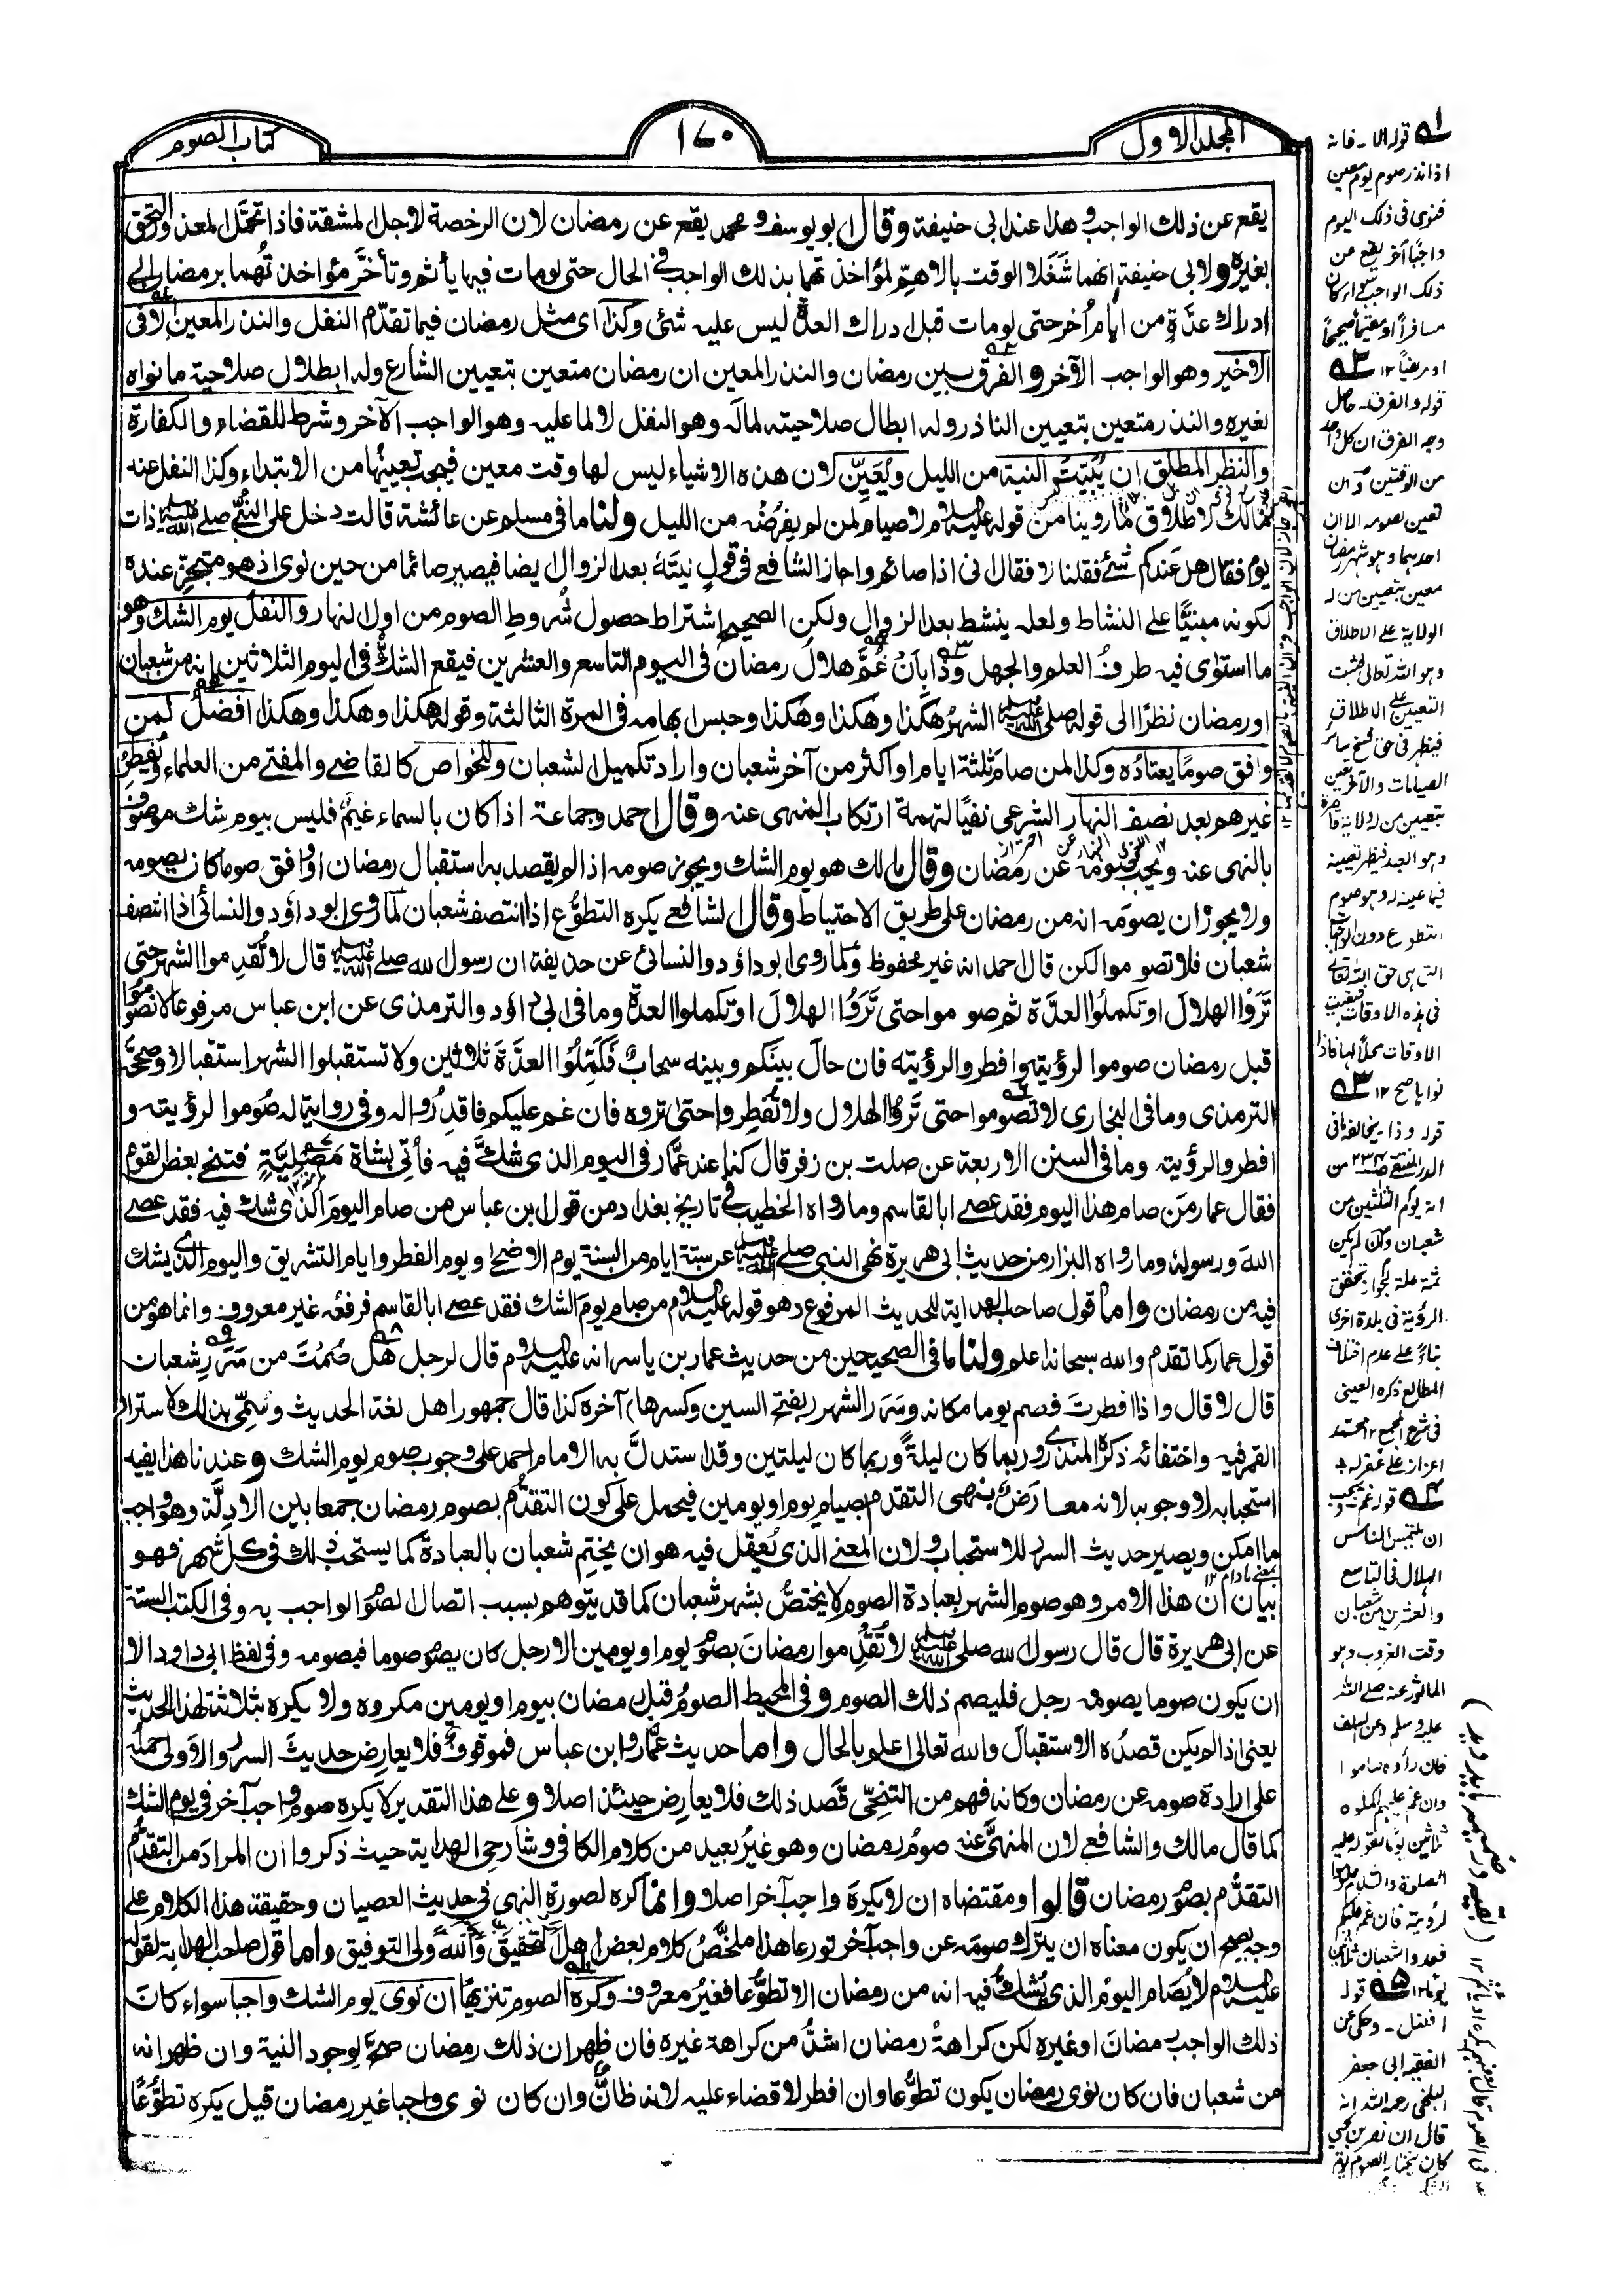 المجلد الاول
١٧٠
كتاب الصوم
يقع عن ذلك الواجب وهذا عند ابى حنيفة وقال ابو يوسف ومحمد يقع عن رمضان لان الرخصة لاجل المشقة فاذا تحمّل المعذور التحق
بغيره ولابى حنيفة انهما شَغَلا الوقت بالاهمّ لمؤاخذتهما بذلك الواجب فى الحال حتى لومات فيها يأثم وتأخّر مؤاخذتُهما برمضان الى
ادراك عدّةٍ من ايام أُخر حتى لومات قبل ادراك العدّة ليس عليه شئ وكذا اى مثل رمضان فيما تقدّم النفل والنذر المعين الا فى
الاخير وهو الواجب الآخر والفرق بين رمضان والنذر المعين ان رمضان متعين بتعيين الشارع وله ابطلال صلاحية مانواه
بغيره والنذر متعين بتعيين الناذر وله ابطال صلاحيته لمالَه وهو النفل لا لما عليه وهو الواجب الآخر وشرط للقضاء والكفارة
والنظر المطلق ان يُبَيّتَ النية من الليل ويُعَيّن لان هذه الاشياء ليس لها وقت معين فيجب تعيينُها من الابتداء وكذا النفل عند
مالك لاطلاق ماروينا من قوله عليه السلام لا صيام لمن لم يفرُضْه من الليل ولنا ما فى مسلم عن عائشة قالت دخل علىّ النبىّ صلى الله عليه وسلم ذات
يوم فقال هل عندكم شئ فقلنا لا فقال انى اذا صائم واجاز الشافعى فى قولٍ نيتَه بعد الزوال ايضا فيصير صائما من حين نوى اذ هو متجزٍ عنده
لكونه مبنيًا على النشاط ولعله ينشط بعد الزوال ولكن الصحيح اشتراط حصول شُروطِ الصوم من اول النهار والنفلُ يوم الشك وهو
ما استوٰى فيه طرفُ العلم والجهل وذا بأنْ غُمّ هلال رمضان فى اليوم التاسع والعشرين فيقع الشك فى اليوم الثلاثين انه من شعبان
او رمضان نظرًا الى قوله صلى الله عليه وسلم الشهرُ هكذا وهكذا وهكذا وحبس ابهامه فى المرة الثالثة وقوله هكذا وهكذا وهكذا افضلُ لمن
وافق صومًا يعتادُه وكذا لمن صامَ ثلثة ايام او اكثر من آخر شعبان واراد تكميل الشعبان وللخواص كالقاضى والمفتى من العلماء ويُفطِرُ
غيرهم بعد نصف النهار الشرعى نفيًا لتهمة ارتكاب المنهى عنه وقال احمد وجماعة اذا كان بالسماء غيمٌ فليس بيوم شك موصوفٍ
بالنهى عنه ويجب صومُه عن رمضان وقال مالك هو يوم الشك ويجوز صومه اذا لم يقصد به استقبال رمضان او وافق صوما كان يصومه
ولا يجوز ان يصومَه انه من رمضان على طريق الاحتياط وقال الشافعى يكره التطوّع اذا انتصف شعبان لما روى ابو داؤد والنسائى اذا انتصف
شعبان فلا تصوموا لكن قال احمد انه غير محفوظ ولما روى ابوداؤد والنسائى عن حذيفة ان رسول الله صلى الله عليه وسلم قال لا تُقَدِموا الشهر حتى
تَرَوْا الهلالَ او تكملوا العدّة ثم صوموا حتى تَرَوُا الهلالَ او تكملوا العدة وما فى ابى داؤد والترمذى عن ابن عباس مرفوعا لا تصوموا
قبل رمضان صوموا لرؤيته وافطروا لرؤيته فان حالَ بينكم وبينه سحابٌ فكمّلوا العدّةَ ثلاثين ولا تستقبلوا الشهر استقبالا وصححَّه
الترمذى وما فى البخارى لا تصوموا حتى تَروُا الهلال ولا تُفطِروا حتى تروه فان غم عليكم فاقدِرُوا له وفى رواية له صُوموا لرؤيته و
افطروا لرؤيته وما فى السنن الاربعة عن صلت بن زفر قال كنا عند عمّار فى اليوم الذى شكّ فيه فأتى بشاة مَصْلِيّةٍ فتنحى بعض القوم
فقال عمار من صام هذا اليوم فقد عصى ابا القاسم وما رواه الخطيب فى تاريخ بغداد من قول ابن عباس من صام اليومَ الذى شك فيه فقد عصى
اللهَ ورسولَه وما رواه البزار من حديث ابى هريرة نهى النبى صلى الله عليه وسلم عن ستة ايام من السنة يوم الاضحى ويوم الفطر وايام التشريق واليوم الذى يشك
فيه من رمضان واما قول صاحب الهداية للحديث المرفوع وهو قوله عليه السلام من صام يومَ الشك فقد عصى ابا القاسم فرفعُه غير معروف وانما هو من
قول عمار كما تقدم والله سبحانه اعلم ولنا ما فى الصحيحين من حديث عمار بن ياسر انه عليه السلام قال لرجل هل صُمْتَ من سَرَرِ شعبان
قال لا قال واذا افطرتَ فصم يوما مكانه وسَرَر الشهر (بفتح السين وكسرها) آخره كذا قال جمهور اهل لغة الحديث وسُمّى بذلك لاستتار
القمر فيه واختفائه ذكره المنذرى وربما كان ليلةً وربما كان ليلتين وقد استدلّ به الامام احمد على وجوب صوم يوم الشك وعندنا هذا يفيد
استحبابه لا وجوبه لانه معارَضٌ بنهى التقدم بصيام يوم او يومين فيحمل على كون التقدّم بصوم رمضان جمعا بين الادلّة وهو واجب
ما امكن ويصير حديث السرر للاستحباب ولان المعنى الذى يُعقل فيه هو ان يختِم شعبان بالعبادة كما يستحب ذلك فى كل شهر فهو
بيان ان هذا الامر وهو صوم الشهر بعبادة الصوم لا يختصّ بشهر شعبان كما قد يتوهم بسبب اتصال الصوم الواجب به وفى الكتب الستة
عن ابى هريرة قال قال رسول الله صلى الله عليه وسلم لا تُقَدِّموا رمضانَ بصوم يوم او يومين الا رجل كان يصوم صوما فيصومه وفى لفظ ابى داود الا
ان يكون صوما يصومه رجل فليصم ذلك الصوم وفى المحيط الصومُ قبل رمضان بيوم او يومين مكروه ولا يكره بثلاثة لهذا الحديث
يعنى اذا لم يكن قصدُه الاستقبالَ والله تعالى اعلم بالحال واما حديث عمّار وابن عباس فموقوفٌ فلا يعارِض حديثَ السرر والاولى حملُه
على ارادة صومه عن رمضان وكانه فهم من التنحّى قصد ذلك فلا يعارِض حينئذ اصلا وعلى هذا التقدير لا يكره صوم واجب آخر فى يوم الشك
كما قال مالك والشافعى لان المنهىّ عنه صومُ رمضان وهو غيرُ بعيد من كلام الكافى وشارحى الهداية حيث ذكروا ان المرادَ من التقدُّمِ
التقدُّم بصوم رمضان قالوا ومقتضاه ان لا يكرهَ واجبٌ آخر اصلا وانما كره لصورة النهى فى حديث العصيان وحقيقة هذا الكلام على
وجه يصح ان يكون معناه ان يترك صومَه عن واجب آخر تورعا هذا ملخّصُ كلام بعض اهل التحقيق والله ولى التوفيق واما قول صاحب الهداية لقوله
عليه السلام لا يُصام اليومُ الذى يُشكّ فيه انه من رمضان الا تطوّعا فغيرُ معروف وكره الصوم تنزيهًا ان نوى يوم الشك واجبا سواء كان
ذلك الواجب رمضانَ او غيره لكن كراهةُ رمضان اشدُّ من كراهة غيره فان ظهر ان ذلك رمضان صحَّ لوجود النية وان ظهر انه
من شعبان فان كان نوى رمضان يكون تطوُّعا وان افطر لا قضاء عليه لانه ظانٌّ وان كان نوى واجبا غير رمضان قيل يكره تطوُّعًا
بمعنى مادام ١٢
٥١ قوله الا - فانه
اذا نذر صوم يوم معين
فنوى فى ذلك اليوم
واجبًا آخر يقع عن
ذلك الواجب سواء كان
مسافراً او مقيمًا صحيحًا
او مريضًا ١٢ ٥٢
قوله والفرق - حاصل
وجه الفرق ان كل واحد
من الوقتين وان
تعين بصومه الا ان
احدهما وهو شهر رمضان
معين بتعيين من له
الولاية على الاطلاق
وهو الله تعالى فثبت
التعيين على الاطلاق
فيظهر فى حق نسخ سائر
الصيامات والآخر تعين
بتعيين من له ولاية قاصرة
وهو العبد فيظهر تعيينه
فيما عينه له وهو صوم
التطوع دون الواجبات
التى هى حق الله تعالى
فى هذه الاوقات فبقيت
الاوقات محلاً لها فاذا
نواها صح ١٢ ٥٣
قوله وذا - يخالفه ما فى
الدر المنتقى من
انه يوم الثلثين من
شعبان وان لم يكن
ثمة علة لجواز تحقق
الرؤية فى بلدة اخرى
بناءً على عدم اختلاف
المطالع ذكره العينى
فى شرح المجمع ١٢ محمد
اعزاز على غفرله
٥٤ قوله غم - ويجب
ان يلتمس الناس
الهلال فى التاسع
والعشرين من شعبان
وقت الغروب وهو
الماثور عنه صلى الله
عليه وسلم وعن السلف
فان رأوه صاموا
وان غم عليهم اكملوه
ثلاثين يومًا لقوله عليه
الصلوة والسلام صوموا
لرؤيته فان غم عليكم
فعدوا شعبان ثلاثين
يومًا ١٢ ٥٥ قوله
افضل - وحكى عن
الفقيه ابى جعفر
البلخى رحمه الله انه
قال ان نصر بن يحيى
كان يختار الصوم يوم
(بقيه در ضميمه بايد ديد)